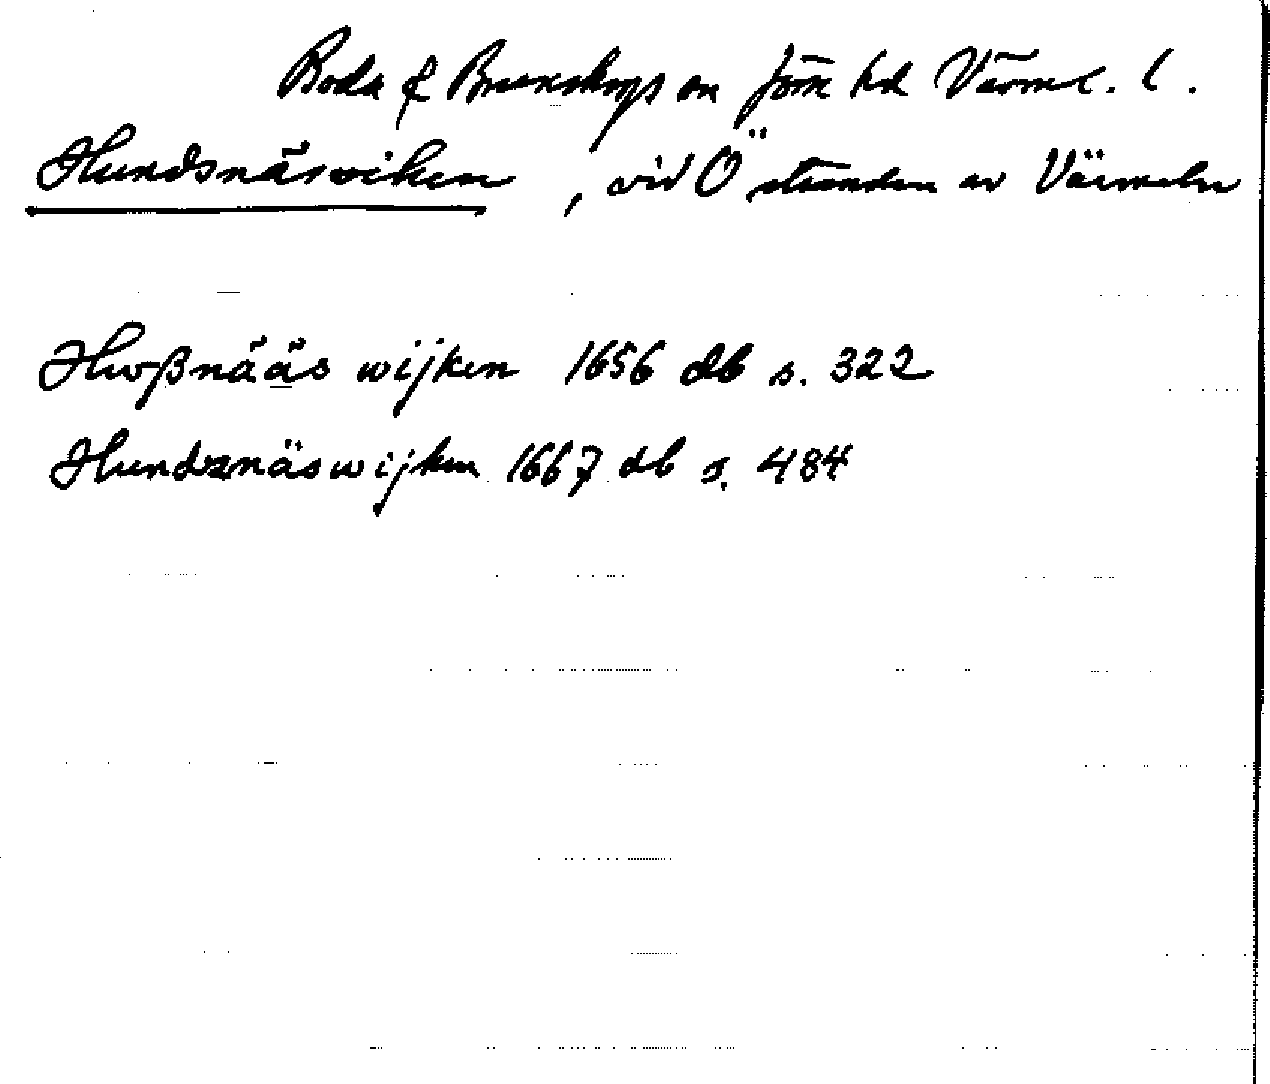 Boda f Brunskogs sn Jösse hd Värml. l.
Hundsnäsviken, vid Ö stranden av Värmeln
Hwßnääs wijken 1656 db s. 322
Hundznäswijken 1667 db s. 484